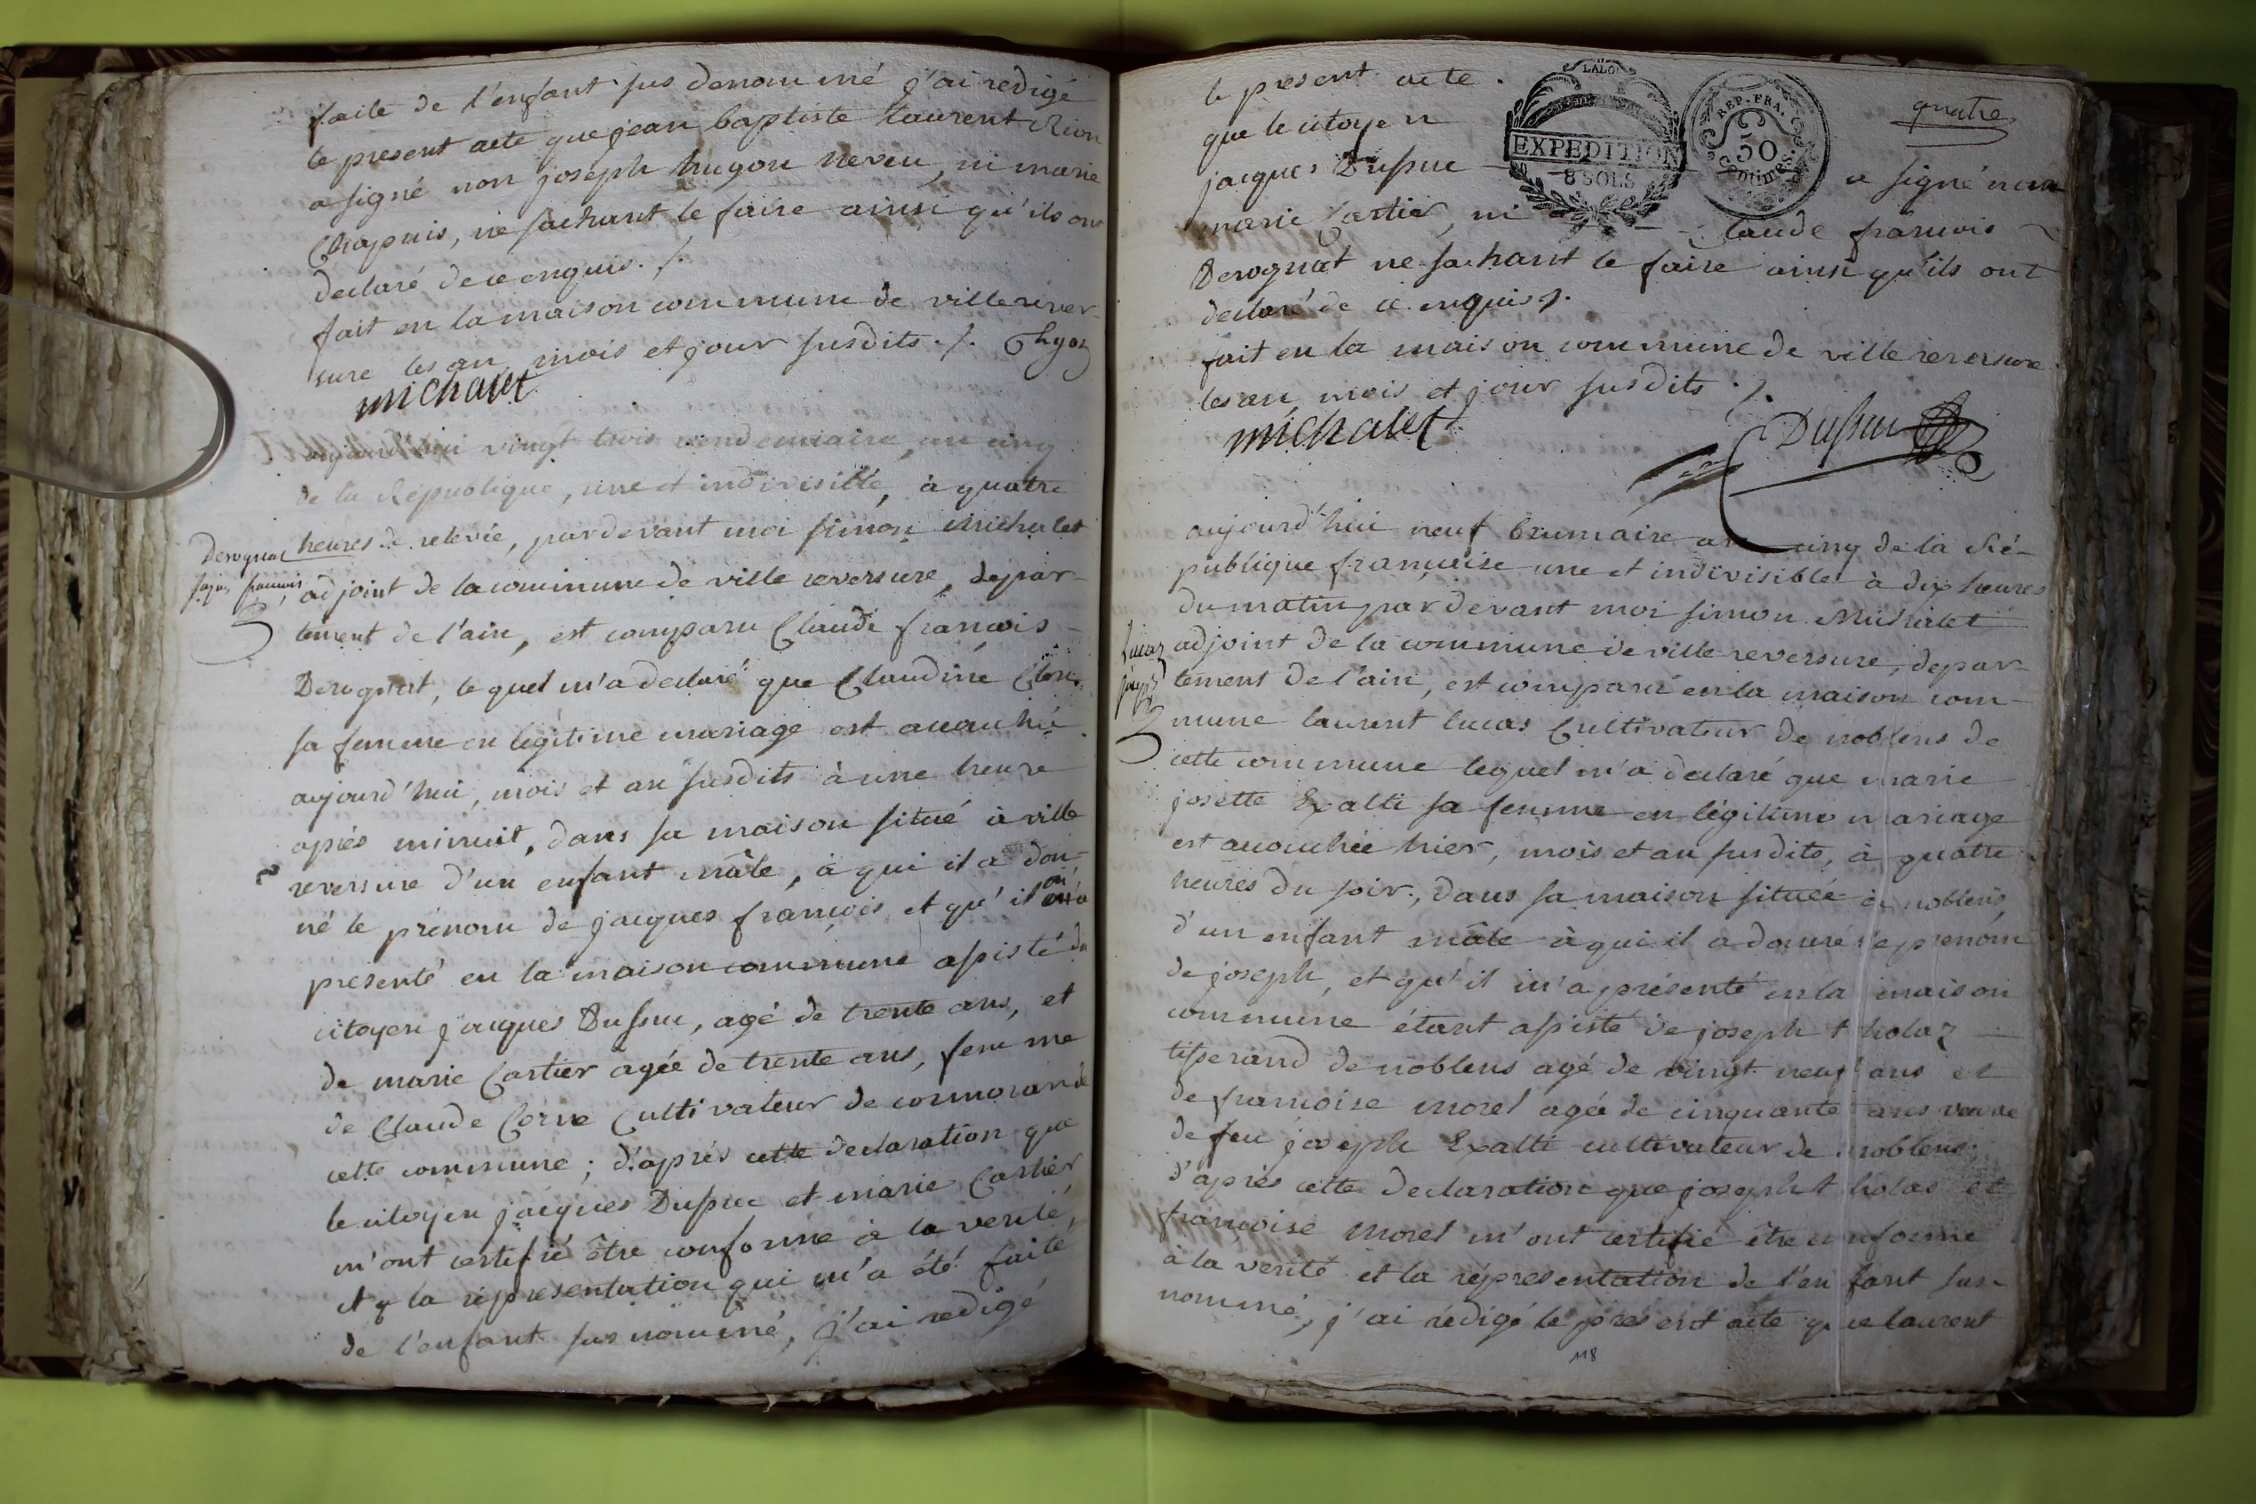 faite de l'enfant sus denommé j'ai redigé
le present acte que jean baptiste Laurent
a signé non joseph hugon neveu, ni marie
Chapuis, ne sachant le faire ainsi qu'ils ont
declaré de ce enquis ./.
fait en la maison commune de ville rever-
sure les an mois et jour susdits ./.
michalet
aujourd'hui vingt trois vendemiaire, an cinq
de la République, une et indivisible, à quatre
heures de relevée, pardevant moi simon Michalet
Derognat
jaques françois
adjoint de la commune de ville reversure, depar-
tement de l'ain, est comparu Claude francois
Derognat, lequel m'a declaré que Claudine
sa femme en légitime mariage est accouchée
aujourd'hui, mois et an susdits à une heure
après minuit, dans sa maison situé à ville
reversure d'un enfant mâle, à qui il a don-
né le prénom de jacques françois et qu'il m'a
presenté en la maison commune assisté du
citoyen jacques Dussuc, agé de trente ans, et
de marie Cartier agée de trente ans, femme
de Claude Corve Cultivateur de cormorand
cette commune ; d'après cette declaration que
le citoyen jacques Dussuc et marie Cartier
m'ont certifié être conforme à la verité,
et la représentation qui m'a été faite
de l'enfant sus nommé, j'ai redigé
le present acte.
que le citoyen
jacques Dussuc
LALO
EXPEDITION
8 SOLS
REP. FRA.
50
Centimes.
quatre
a signé non
marie Cartier, ni
Claude francois
Derognat ne sachant le faire ainsi qu'ils ont
declaré de ce enquis ./.
fait en la maison commune de ville reversure
les an mois et jour susdits ./.
michalet
Dussuc
aujourd'hui neuf brumaire an cinq de la Ré-
publique française une et indivisible à dix heures
du matin pardevant moi simon Michalet
Lucas
adjoint de la commune de ville reversure, depar-
tement de l'ain, est comparu en la maison com-
mune laurent lucas Cultivateur de noblens de
cette commune lequel m'a declaré que marie
josette Exalti sa femme en légitime mariage
est accouchée hier, mois et an susdits, à quatre
heures du soir, dans sa maison située à noblens,
d'un enfant mâle à qui il a donné le prénom
de joseph, et qu'il m'a présenté en la maison
commune étant assisté de joseph tholaz
tisserand de noblens agé de vingt neuf ans et
de francoise morel agée de cinquante ans veuve
de feu joseph Exalti cultivateur de noblens;
d'après cette declaration que joseph tholas et
francoise morel m'ont certifié être conforme
à la verité et la représentation de l'enfant sus
nommé, j'ai rédigé le présent acte que laurent
118